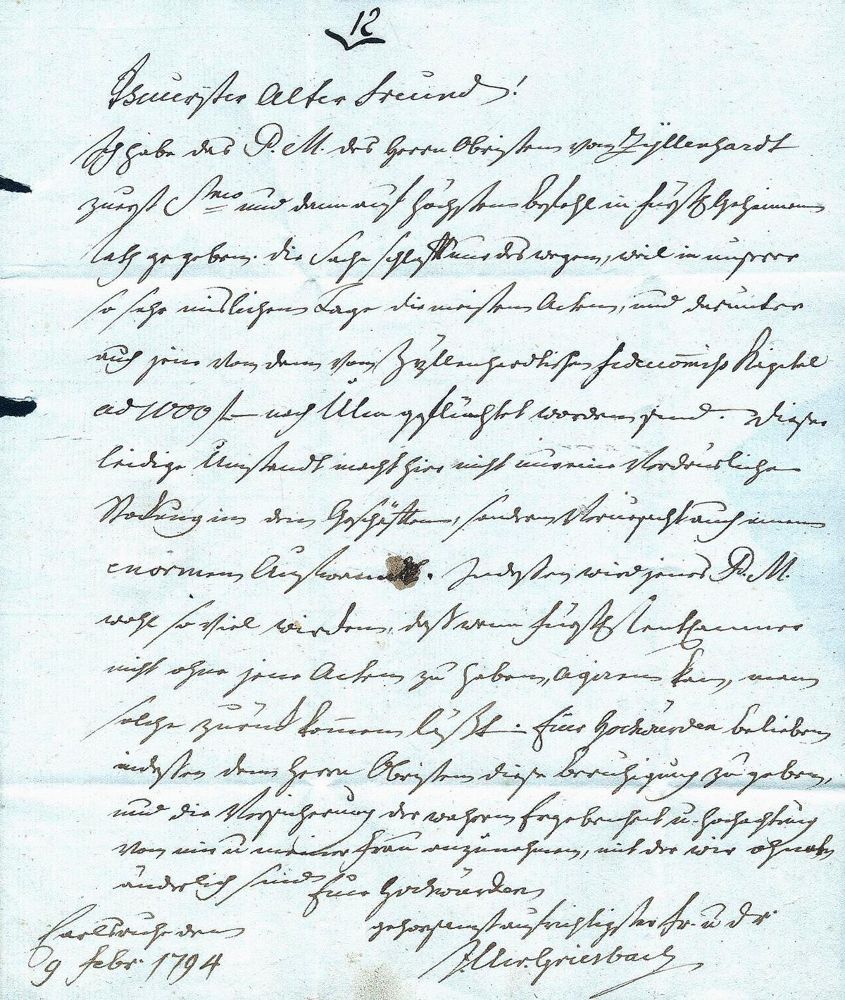 12
Theuerster Alter Freund!
Ich habe das P. M. des Herrn Obristen von Zyllenhardt
zuerst Smo und dann auf höchsten Befehl in fürstl Geheimen
rath gegeben. die Sache schläft nur deswegen, weil in unserer
so sehr mislichen Lage die meisten Acten, und darunter
auch jene von dem von Zyllenhardtischen Kapital
ad 1000 f nach Ulm geflüchtet worden sind. Dieser
leidige Umstandt macht hier nicht nur eine Verdrüsliche
Stockung in den Geschäften, sondern Verursacht auch einen
enormen Aufwand. Indessen wird jenes P. M.
wohl so viel wirken, daß wenn fürstl Rentkammer
nicht ohne jene Acten zu haben, agiren kan, man
solche zurück kommen läßt. Euer Hochwürden belieben
indessen dem Herrn Obristen diese Beruhigung zu geben,
und die Versicherung der wahren Ergebenheit u. Hochachtung
von mir u meiner Frau anzunehmen, mit der wir ohnab
änderlich sind Euer Hochwürden
Carlsruhe den gehorsamst aufrichtigster Fr. u dr
9 Febr 1794 Griesbach